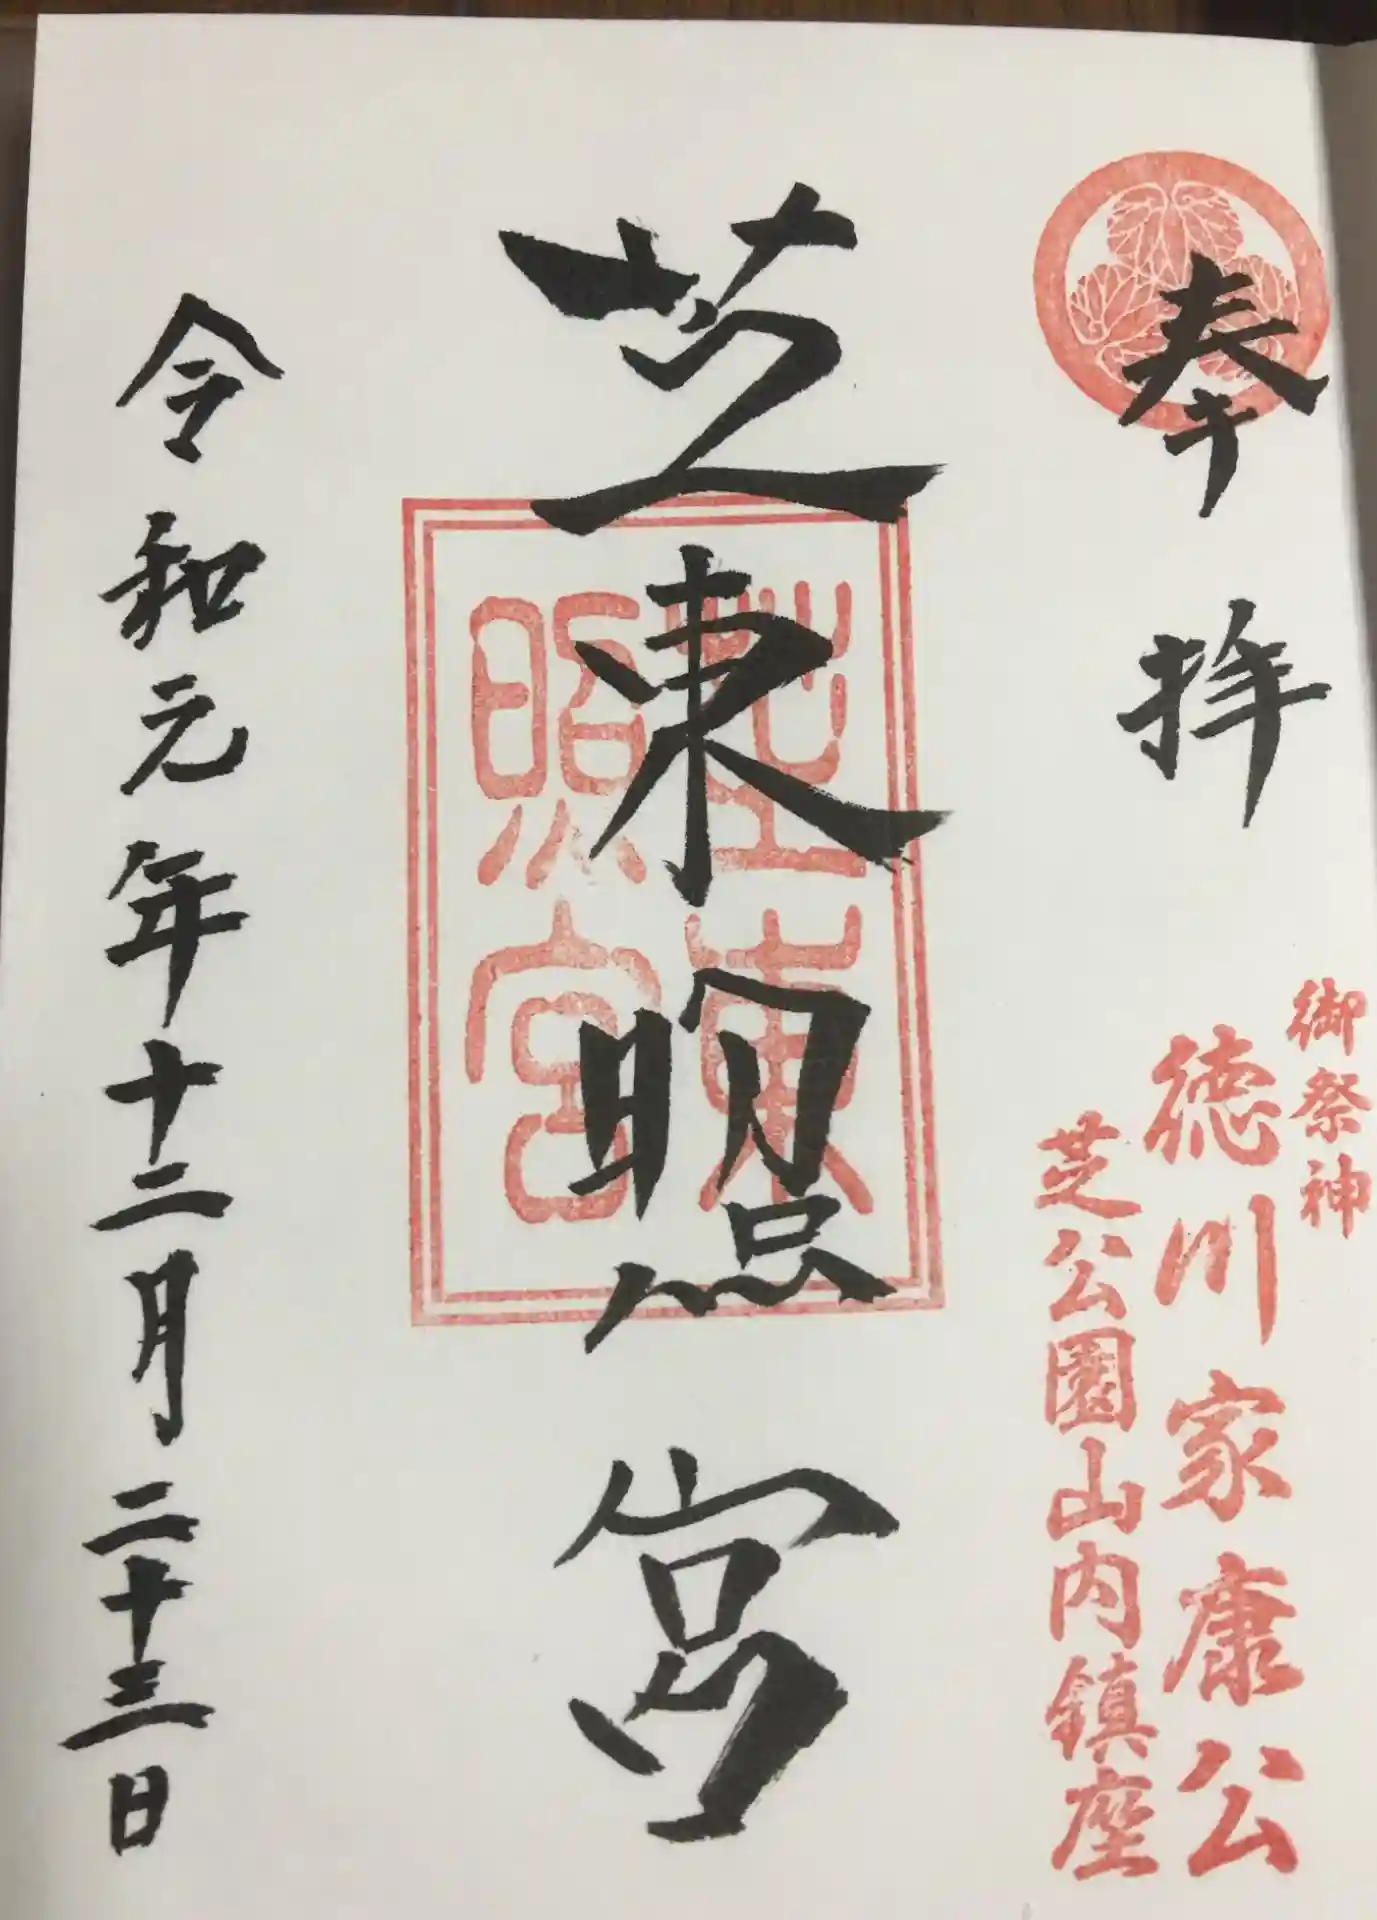 奉拝
御祭神
徳川家康公
芝公園山内鎮座
芝東照宮
芝東
照宮
令和元年十二月二十三日